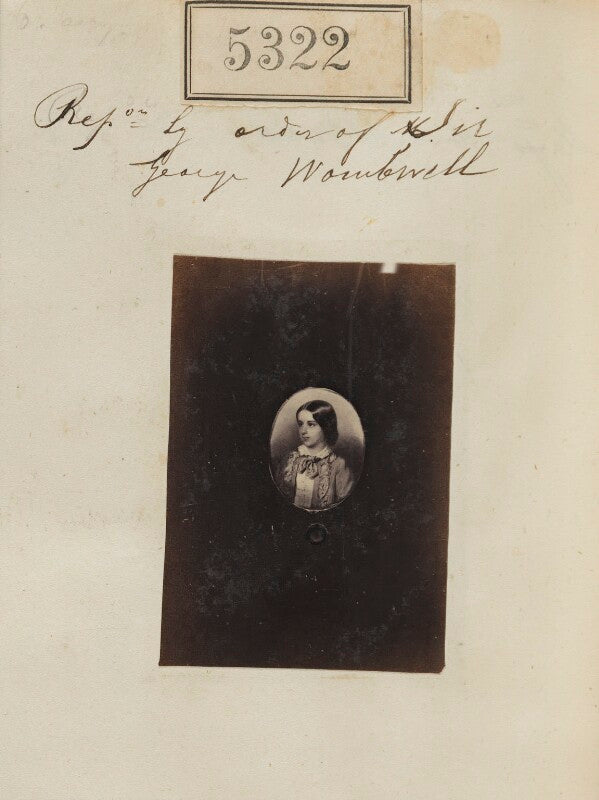 5322
Repon by order of Sir
George Wombwell